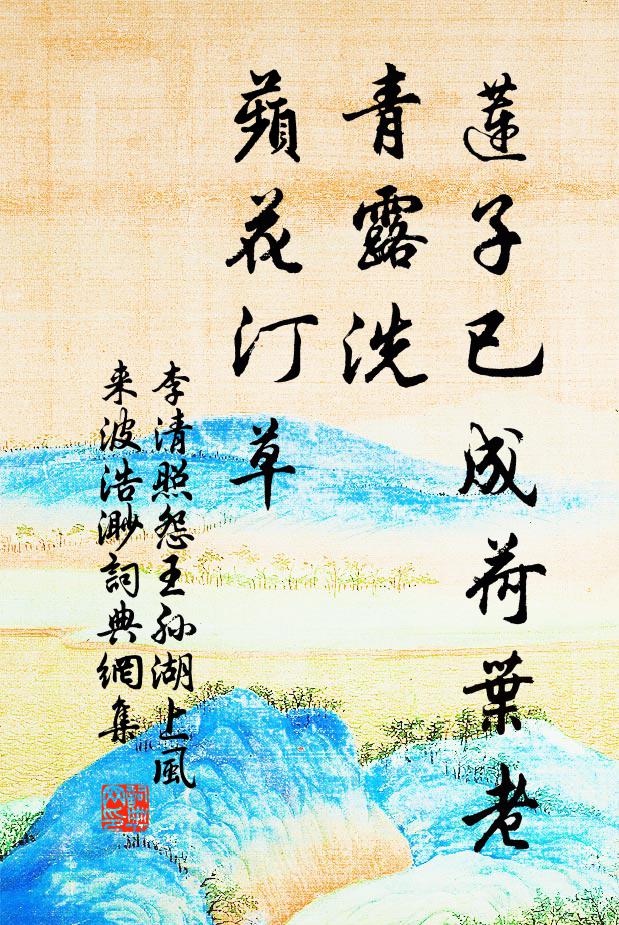 蓮子已成荷葉老
青露洗
蘋花汀草
李清照怨王孙湖上風
来波浩渺詞典網集